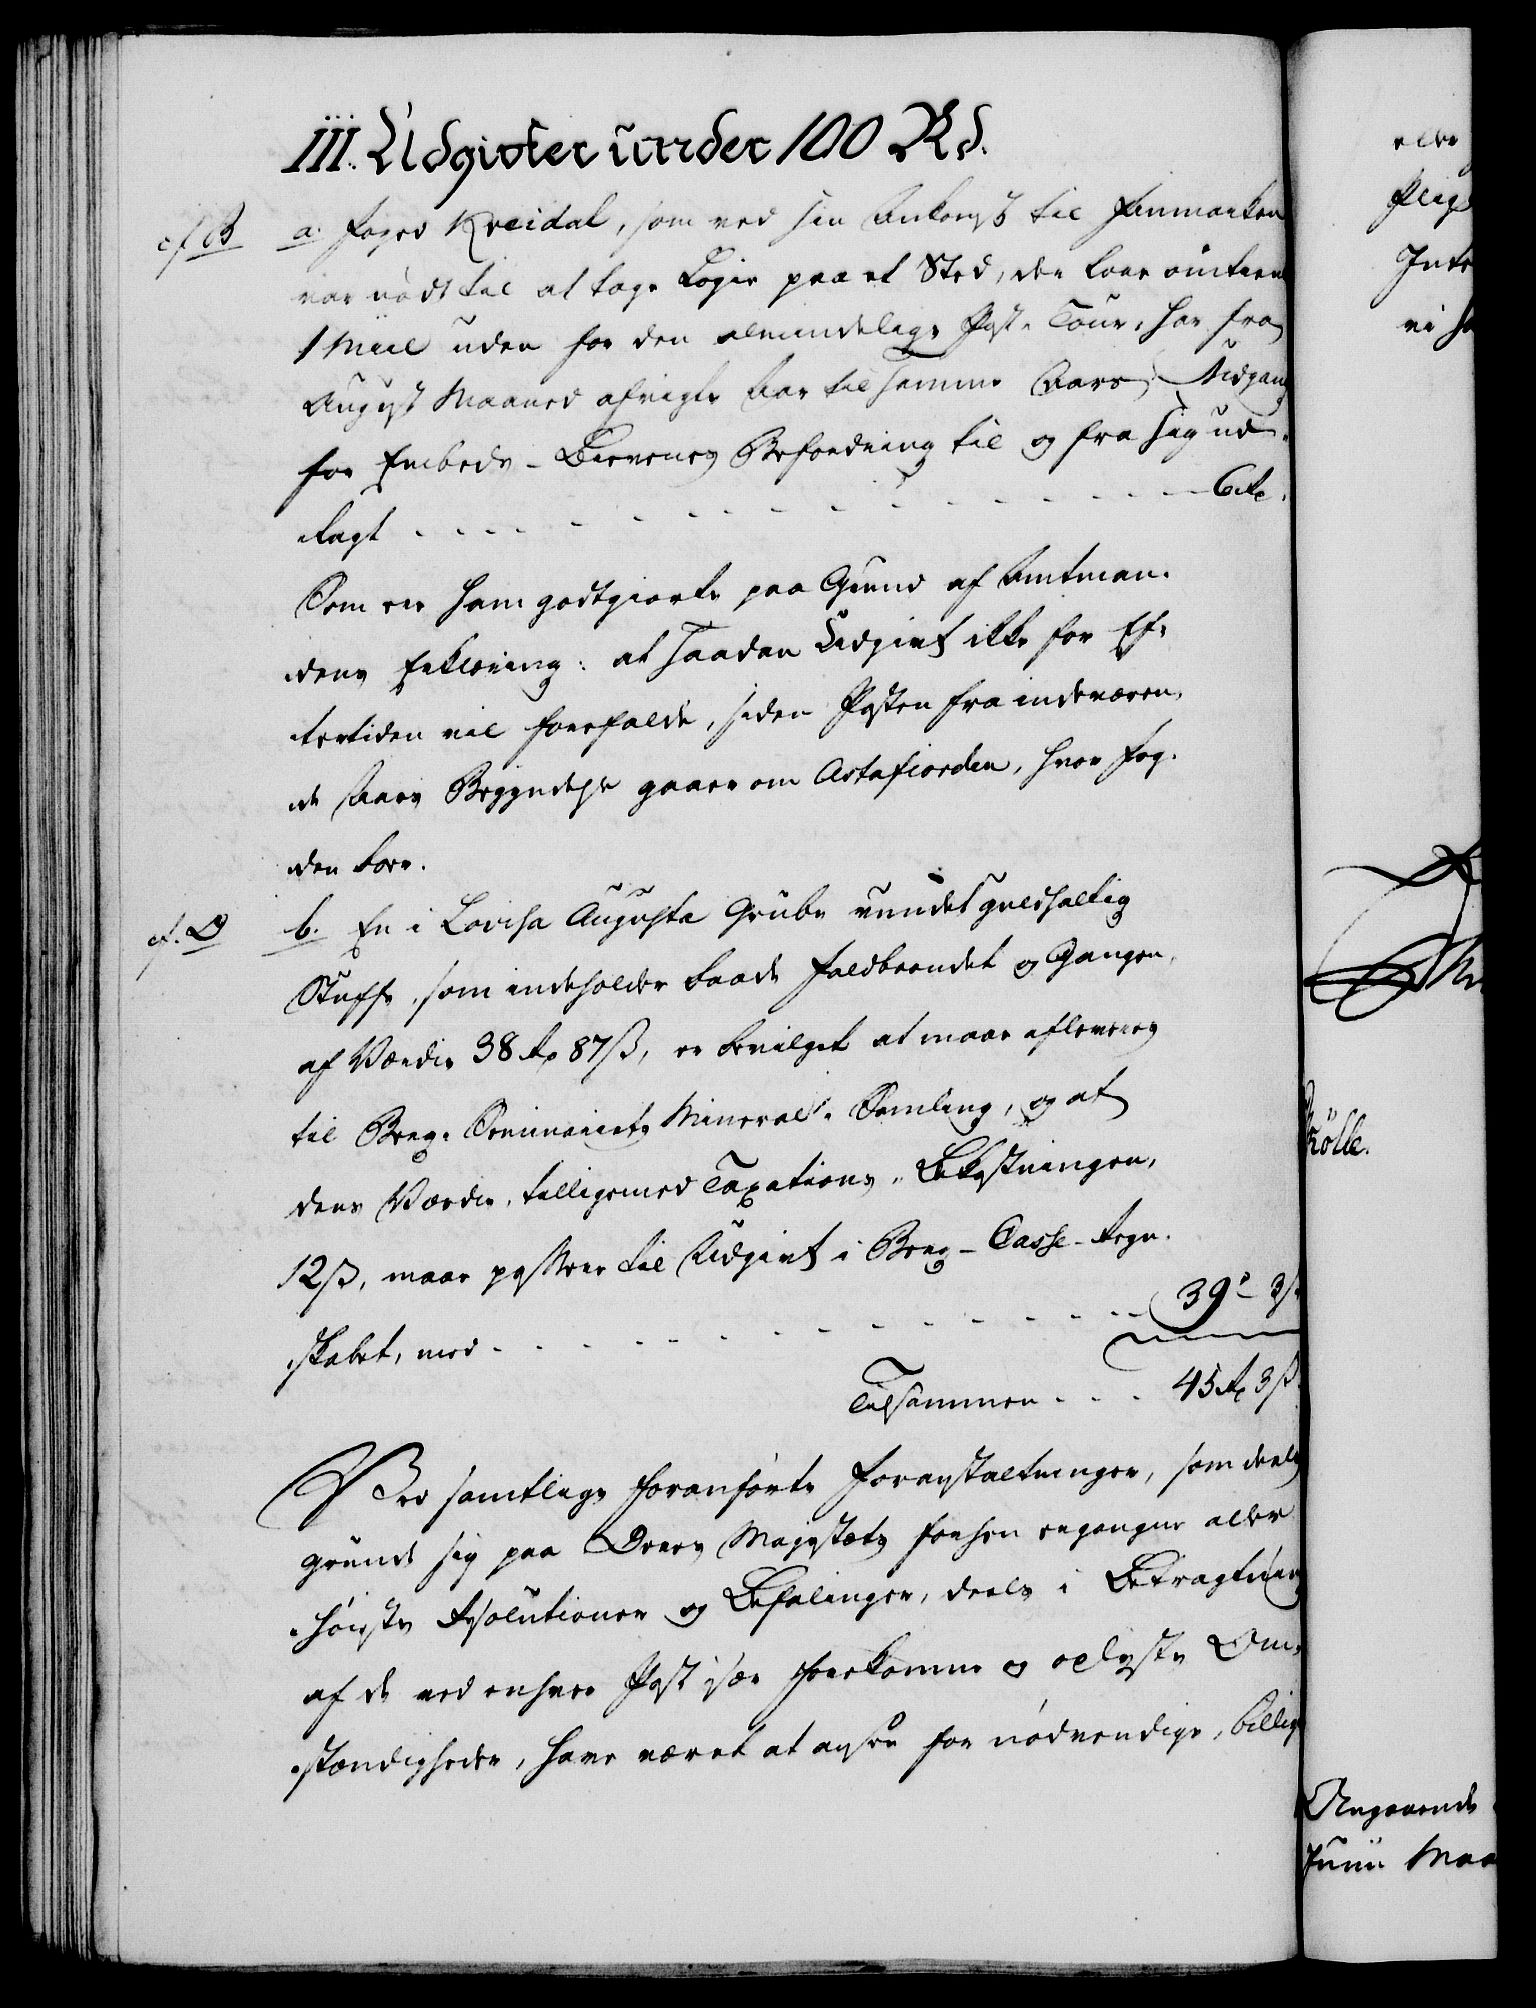 III. Udgivter under 100 Rd.
cf. B a. Foged Kreidal, som ved sin Ankomst til Finmarken
var nødt til at tage Logie paa et Sted, der laae omtrent
1 Miil uden for den almindelige Post-Tour, har fra
August Maaned afvigte Aar til samme Aars Udgang
for Embeds-Brevenes Befordring til og fra sig ud-
lagt - - - - - - - - - - - - 6 Rd.
Som er ham godtgiorte paa Grund af Amtman-
dens Erklæring: at saadan Udgivt ikke for Ef-
tertiden vil forefalde, siden Posten fra indeværen-
de Aars Begyndelse gaaer om Altafiorden, hvor Fog-
den boer.
cf. D b. En i Lovisa Augusta Grube vundet guldholtig
Stuffe, som indeholder baade Faldbaandet og Gangen,
af Værdie 38 Rd 87 ß, er bevilget at maae afleveres
til Berg-Seminariets Mineral-Samling, og at
dens Værdie, tilligemed Taxations-Bekostningen,
12 ß, maae passere til Udgivt i Berg-Casse-Regn-
skabet, med - - - - - - - - - - 39 - 3 ß
Tilsammen - - - 45 Rd 3 ß.
Ved samtlige foranførte Foranstaltninger, som deels
grunde sig paa Deres Majestæts forhen ergangne aller-
høieste Resolutioner og Befalinger, deels i Betragtning
af de ved enhver Post især forekomne og oplyste Om-
stændigheder, have været at ansee for nødvendige, billige
eller
Plig
Inte
vi ha
Kölle.
Angaaende
Junii Maa